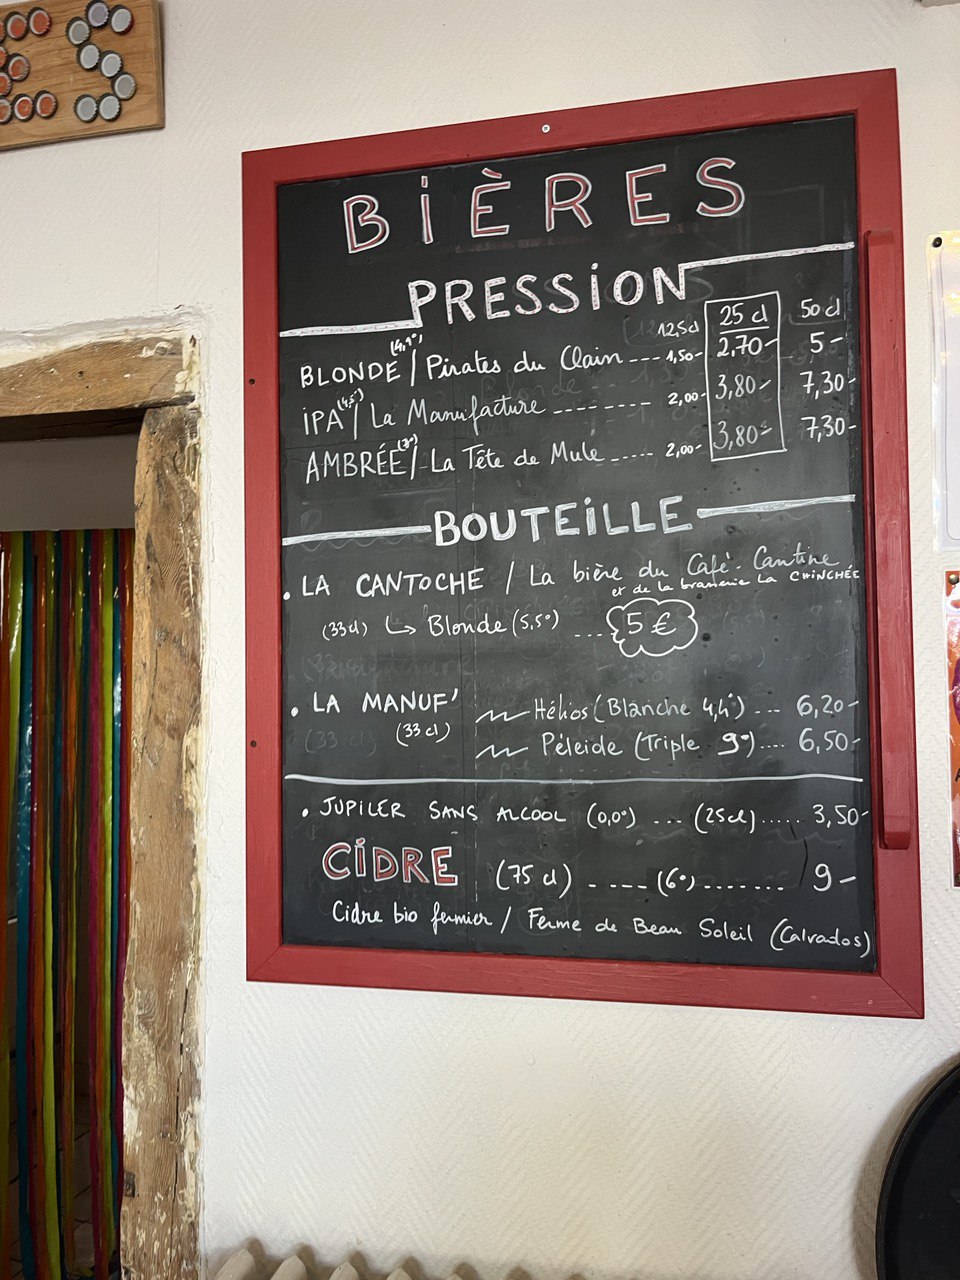 ES
BIÈRES
PRESSION
12,5cl 25 cl 50 cl
BLONDE (4,9°) / Pirates du Clain --- 1,50- 2,70- 5-
IPA (4,5°) / La Manufacture -------- 2,00- 3,80- 7,30-
AMBRÉE / La Tête de Mule ----- 2,00- 3,80- 7,30-
BOUTEILLE
• LA CANTOCHE / La bière du Café-Cantine
et de la brasserie LA CHINCHÉE
(33cl) ↳ Blonde (5,5°) .... 5 €
• LA MANUF' Hélios (Blanche 4,4°) ... 6,20-
(33 cl) Péleide (Triple 9°).... 6,50-
• JUPILER SANS ALCOOL (0,0°) ... (25cl)...... 3,50-
CIDRE (75 cl) - ---- (6°)....... 9-
Cidre bio fermier / Ferme de Beau Soleil (Calvados)